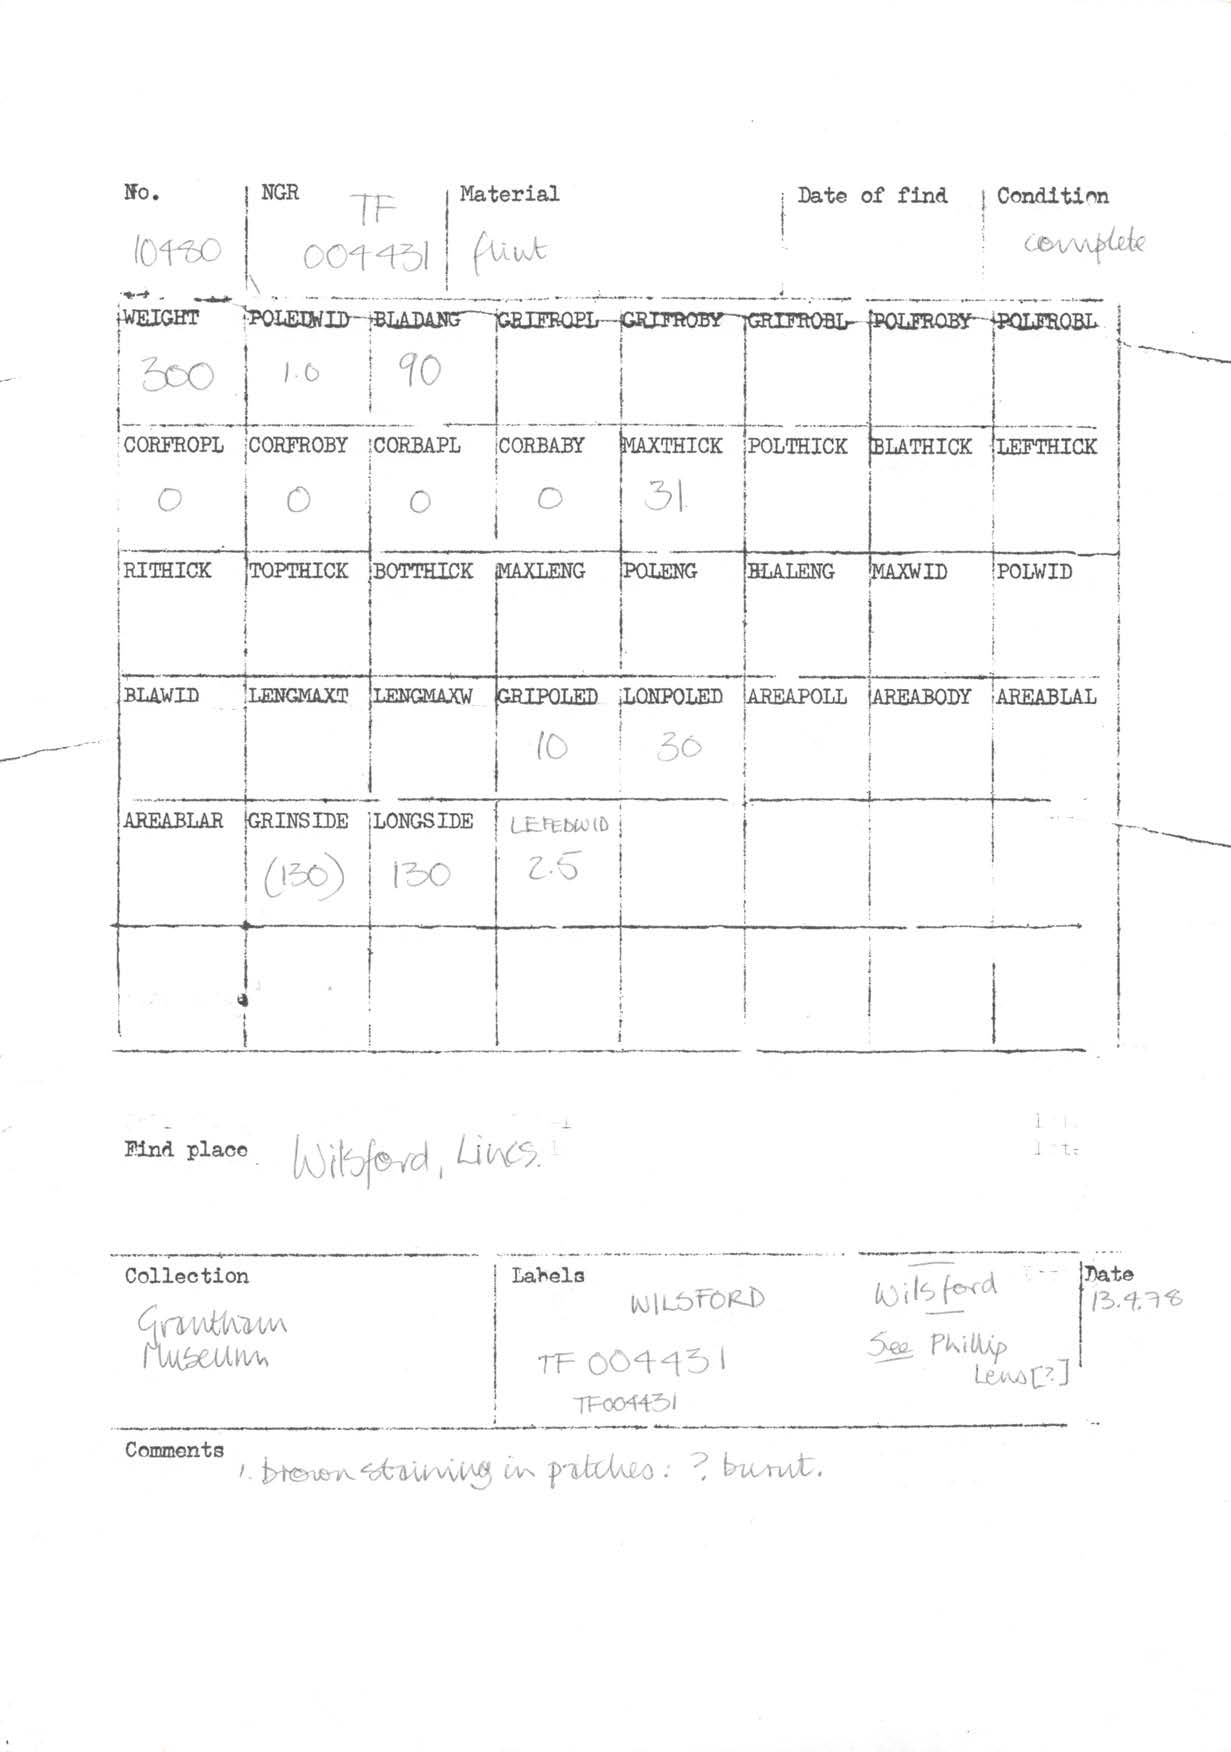 No. NGR Material Date of find Condition
TF
10480 004431 flint complete
WEIGHT POLEDWID BLADANG GRIFROPL GRIFROBY GRIFROBL POLFROBY POLFROBL
300 1.0 90
CORFROPL CORFROBY CORBAPL CORBABY MAXTHICK POLTHICK BLATHICK LEFTHICK
0 0 0 0 31
RITHICK TOPTHICK BOTTHICK MAXLENG POLENG BLALENG MAXWID POLWID
BLAWID LENGMAXT LENGMAXW GRIPOLED LONPOLED AREAPOLL AREABODY AREABLAL
10 30
AREABLAR GRINSIDE LONGSIDE LEFEDWID
(130) 130 2.5
Find place Wilsford, Lincs.
Collection Labels Date
WILSFORD Wilsford 13.4.78
Grantham
Museum TF 004431 See Phillip
Lens[?]
TF004431
Comments
1. brown staining in patches: ? burnt.